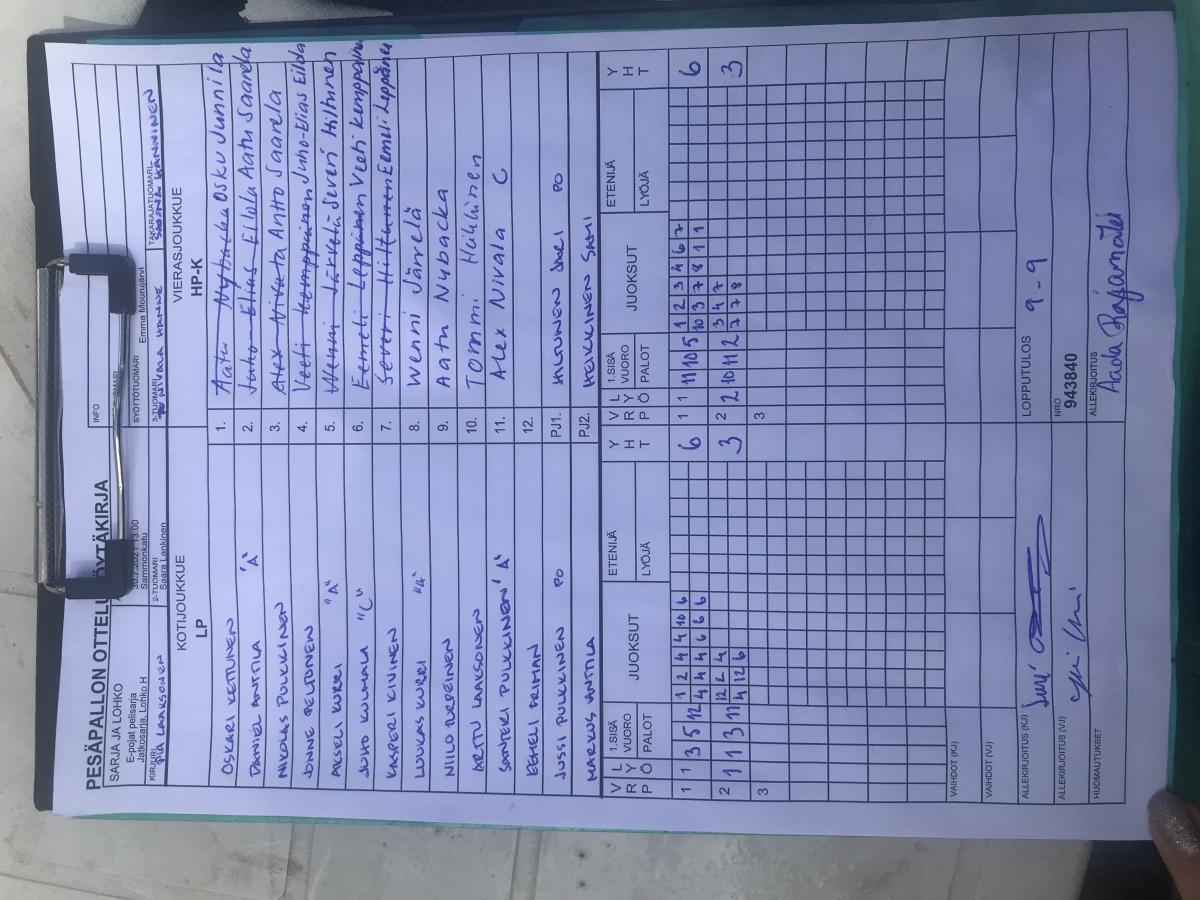 PESÄPALLON OTTELUPÖYTÄKIRJA
INFO
SARJA JA LOHKO
E-pojat pelisarja
Jatkosarja, Lohko H
30.7.2021 13:00
Sammonkatu
SYÖTTÖTUOMARI
Emma Mourujärvi
KIRJURI
PIA LAAKSONEN
2-TUOMARI
Saara Lankinen
3-TUOMARI
NIVALA HANNE
TAKARAJATUOMARI
KANNINEN
KOTIJOUKKUE
LP
VIERASJOUKKUE
HP-K
OSKARI KETTUNEN
1. Aatu Nybacka Osku Junnila
DANIEL ANTTILA "A"
2. Juho-Elias Eilola Aatu Saarela
NIKOLAS PULKKINEN
3. Alex Nivala Antto Saarela
JONNE PELTONEN
4. Veeti Kemppainen Juho-Elias Eilola
AKSELI KURRI "A"
5. Wenni Severi Hiltunen
JUHO KULMALA "C"
6. Eemeli Leppänen Veeti Kemppainen
KASPERI KIVINEN
7. Severi Hiltunen Eemeli Leppänen
LUUKAS KURRI "A"
8. Wenni Järvelä
NIILO
9. Aatu Nybacka
ARTTU LAAKSONEN
10. Tommi Heikkinen
SANTERI PULKKINEN "A"
11. Alex Nivala C
EEMELI FRIMAN
12.
JUSSI PULKKINEN PO
PJ1. HILTUNEN JARI PO
MARKUS ANTTILA
PJ2. HEIKKINEN SAMI
V R P L Y Ö 1.SISÄ VUORO PALOT JUOKSUT ETENIJÄ LYÖJÄ Y H T
V R P L Y Ö 1.SISÄ VUORO PALOT JUOKSUT ETENIJÄ LYÖJÄ Y H T
1 1 3 5 12 1 2 4 4 10 6 6
4 4 4 6 6 6
1 1 11 10 5 1 2 3 4 6 7 6
10 3 7 8 1 1
2 1 1 3 11 12 2 4 3
4 12 6
2 2 10 11 2 3 4 7 3
7 7 8
3
3
VAIHDOT (KJ)
VAIHDOT (VJ)
ALLEKIRJOITUS (KJ)
LOPPUTULOS 9-9
ALLEKIRJOITUS (VJ)
NRO
943840
HUOMAUTUKSET
ALLEKIRJOITUS
Aada Rajamäki